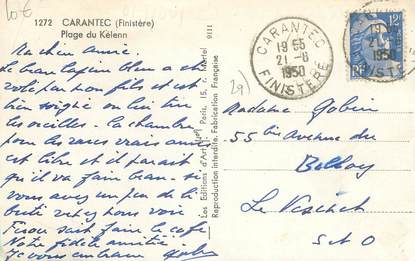 10€
1272 CARANTEC (Finistère)
Plage du Kélenn
Ma chère amie.
Le beau lapin bleu a été
voté par mon fils et est
bien soigné on lui tire
les oreilles. La chambre
pour les vrais amis
est libre et il parait
qu'il va faire beau. si
vous avez un peu de li
berté venez nous voir
sait faire le café
Notre fidèle amitié
Je vous embrasse
Les Editions d'Art Paris, 15, r. Martel 9111
Reproduction interdite. Fabrication Française
29)
CARANTEC
19 55
21-8
1950
FINISTÈRE
12F
RF
19
21
1950
NIST
Madame Gobin
55 bis avenue du
Belloy
Le Vésinet
S et O